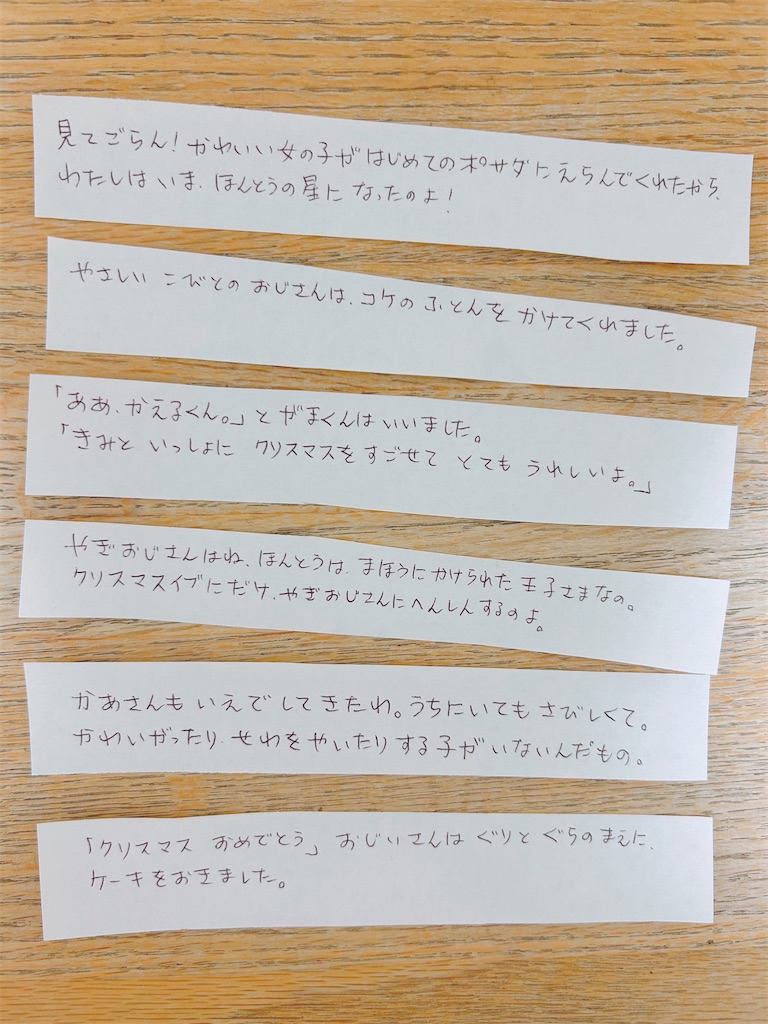 見てごらん!かわいい女の子がはじめてのポサダにえらんでくれたから、
わたしはいま、ほんとうの星になったのよ!
やさしい こびとの おじさんは、コケの ふとんを かけてくれました。
「ああ、かえるくん。」とがまくんはいいました。
「きみと いっしょに クリスマスを すごせて とても うれしいよ。」
やぎおじさんはね、ほんとうは、まほうにかけられた王子さまなの。
クリスマスイブにだけ、やぎおじさんにへんしんするのよ。
かあさんも いえでしてきたわ。うちにいても さびしくて。
かわいがったり、せわをやいたりする子がいないんだもの。
「クリスマス おめでとう」 おじいさんは ぐりと ぐらのまえに、
ケーキをおきました。